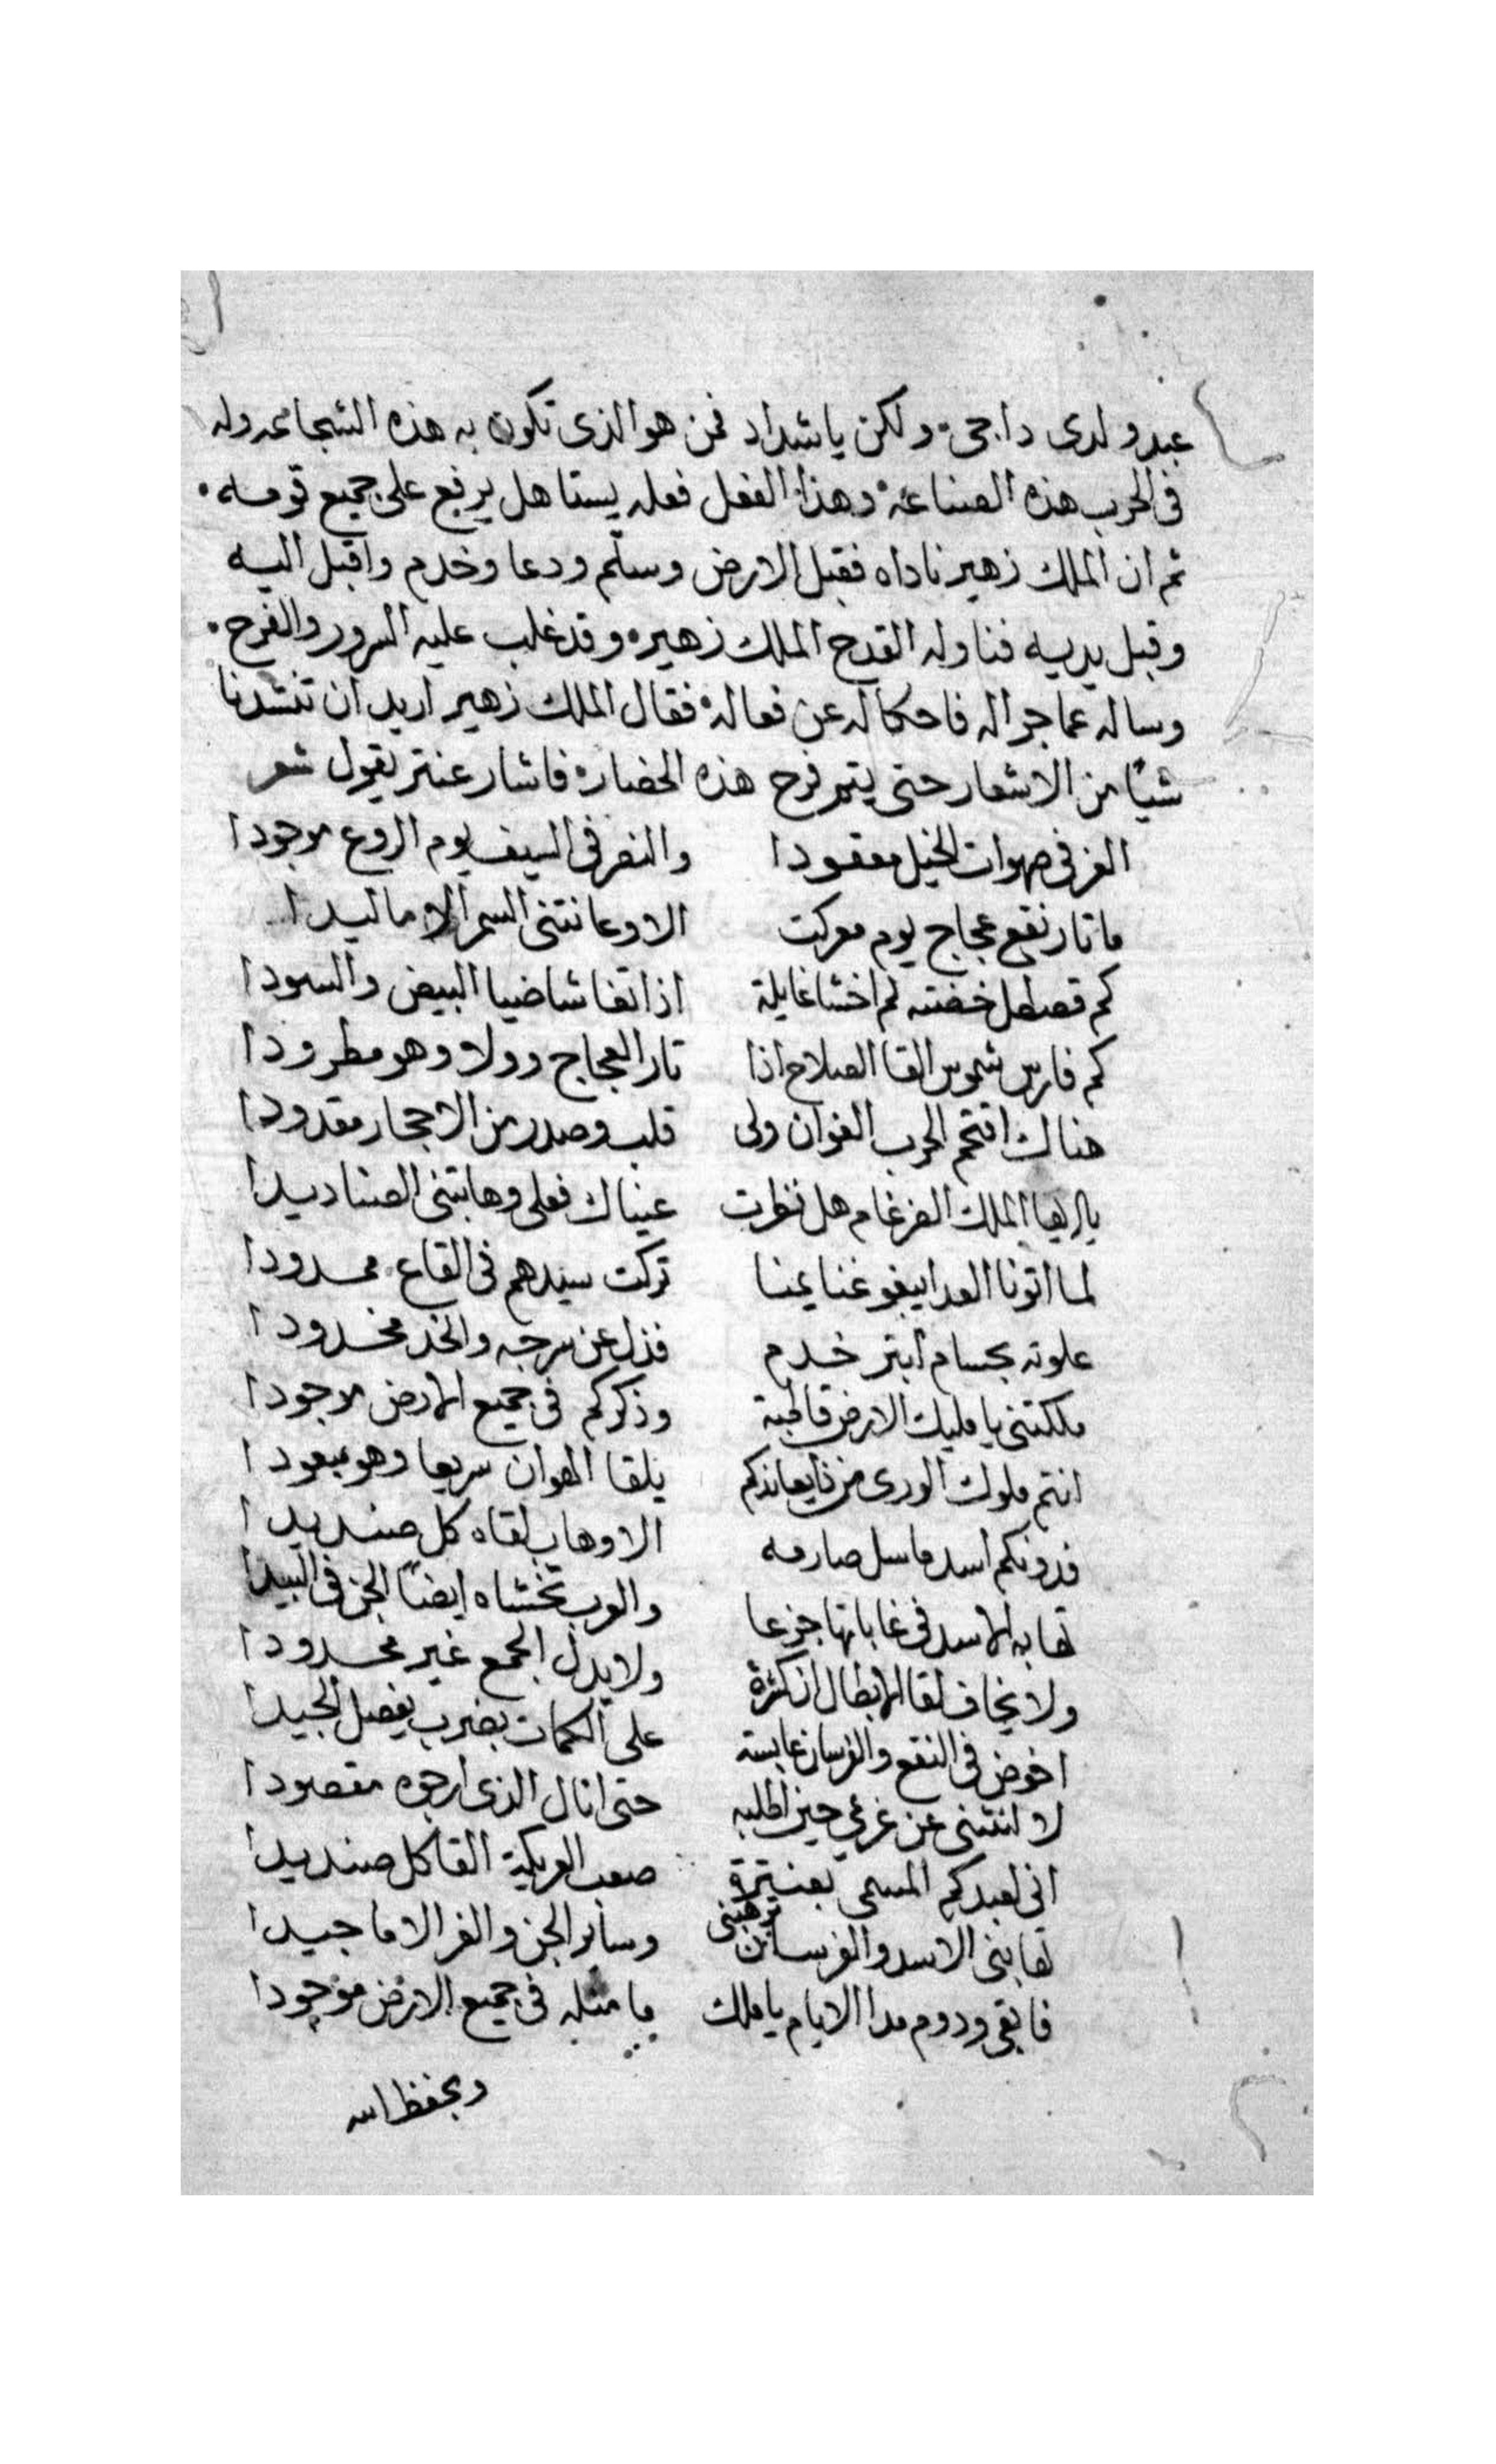 عبد ولدى داجى ولكن ياشداد فمن هو الذى تكون به هذه الشجاعه وله
فى الحرب هذه الصناعه وهذا الفعل فعله يستاهل يرفع على جميع قومه
ثم ان الملك زهير ناداه فقبل الارض وسلّم ودعا وخدم واقبل اليه
وقبل يديه فناوله القدح الملك زهير وقد غلب عليه السرور والفرح
وساله عما جرا له فاحكا له عن فعاله فقال الملك زهير اريد ان تنشدنا
شيئا من الاشعار حتى يتم فرح هذه الحضاره فاشار عنتر يقول شعر
العز فى صهوات الخيل معقودا والنصر فى السيف يوم الروع موجودا
ما ثار نقع عجاج يوم معركت الا وعانتنى السمر الاماليدا
كم قصطل خضته لم اخشا غايلة اذا تغاشا ضيا البيض والسودا
كم فارس شموس القا الصلاح اذا ثار العجاج وولا وهو مطرودا
هناك اقتحم الحرب العوان ولى قلب وصدر من الاحجار مقدودا
يا ايها الملك الضرغام هل نظرت عيناك فعلى وهابتنى الصناديدا
لما اتونا العدا يبغو غنايمنا تركت سيدهم فى القاع ممدودا
علوته بحسام ابتر خدم فذل عن سرجه والخد مخدودا
ملكتنى يا مليك الارض قاطبة وذكركم فى جميع الارض موجودا
انتم ملوك الورى من ذا يعاندكم يلقا الهوان سريعا وهو مبعودا
فدونكم اسد ما سل صارمه الا وهاب لقاه كل صنديدا
تهابه الاسد فى غاباتها جزعا والعرب تخشاه ايضًا الجن فى البيدا
ولا يخاف لقا الابطال ان كثرة ولا يدل الجمع غير محدودا
اخوض فى النقع والفرسان عابسة على الكمات بضرب يفصل الجيدا
لا انتنى عن غرمى حين اطلبه حتى انال الذى ارجوه مقصودا
انى لعبدكم المسمى بعنترة صعب العريكية القا كل صنديدا
تهابنى الاسد والفرسان ترهبنى وسائر الجن والغر الاماجيدا
فابقى ودوم مدا الايام يا ملك ما مثله فى جميع الارض موجودا
وبحفظ الله